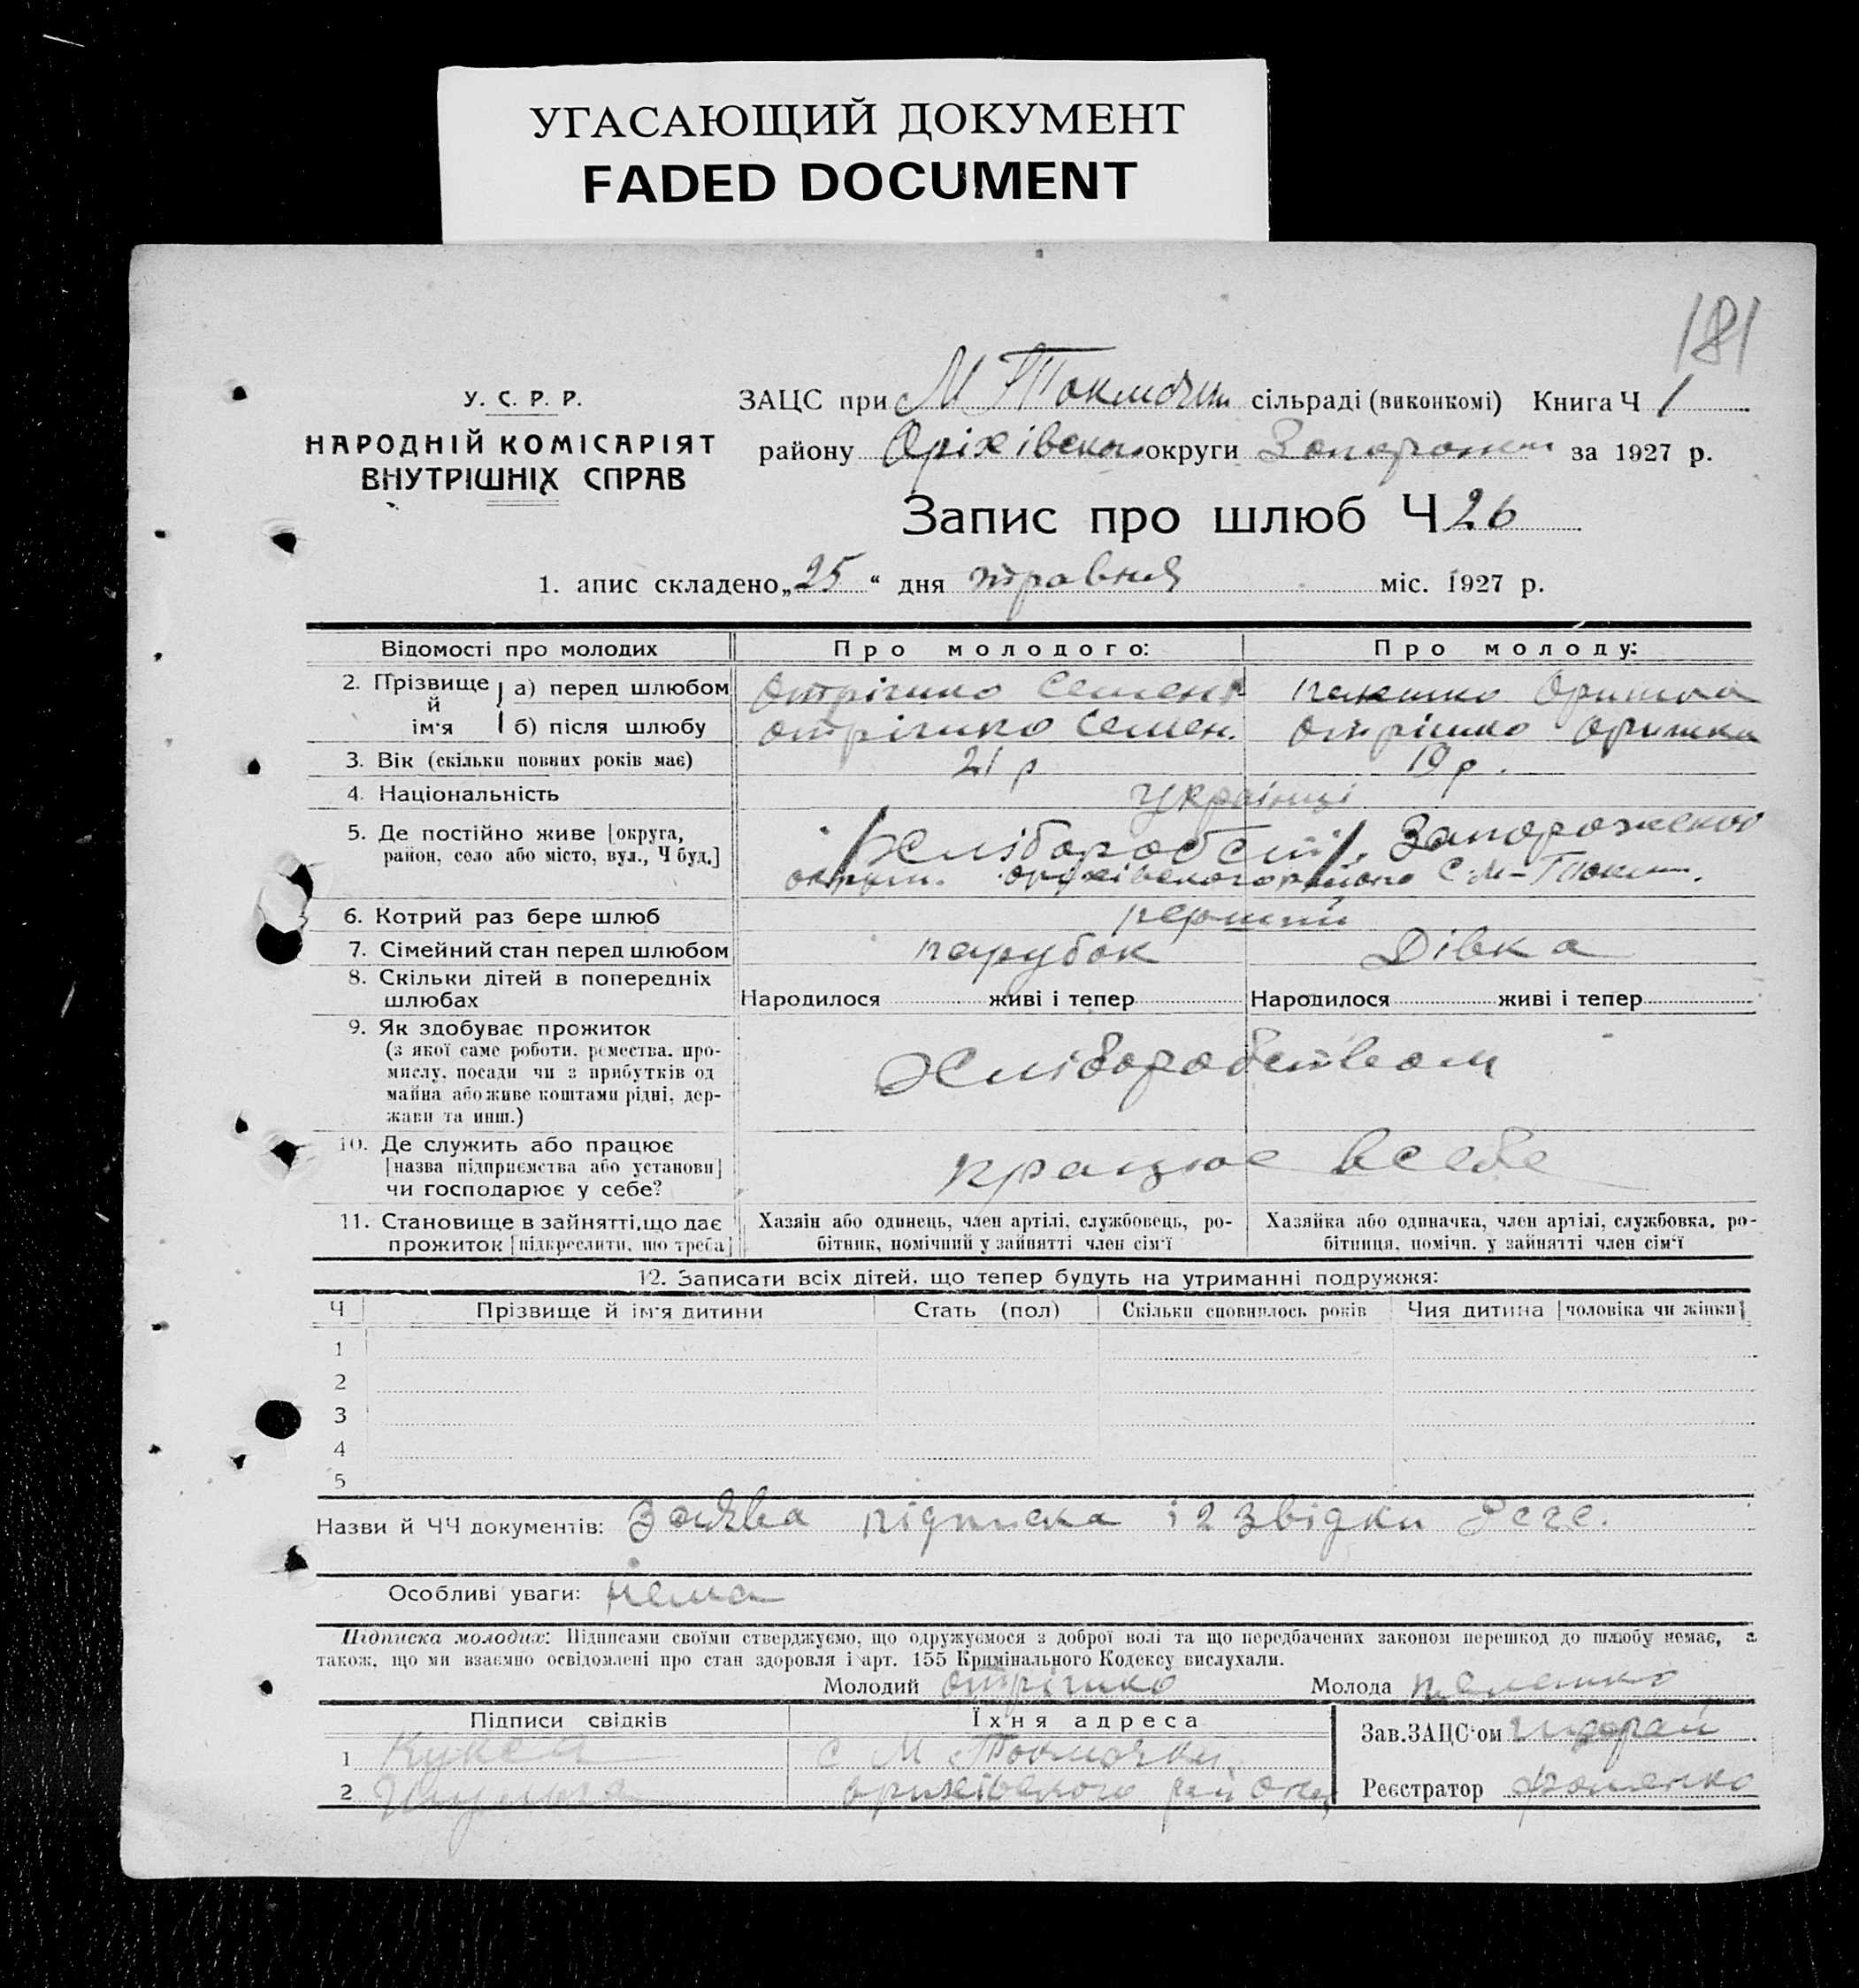 УГАСАЮЩИЙ ДОКУМЕНТ
FADED DOCUMENT
181
У. С. Р. Р.
НАРОДНІЙ КОМІСАРІЯТ
ВНУТРІШНІХ СПРАВ
ЗАЦС при М Токмочан сільраді (виконкомі) Книга Ч 1
району Оріхівськ округи Запорож за 1927 р.
Запис про шлюб Ч 26
1. апис складено „25“ дня травня міс. 1927 р.
Відомості про молодих Про молодого: Про молоду:
2. Прізвище й ім'я а) перед шлюбом Отрішко Семен Оришка
б) після шлюбу Отрішко Семен. Отрішко Оришка
3. Вік (скільки повних років має) 21 р 19 р.
4. Національність Українці
5. Де постійно живе [округа, Запорожской
район, село або місто, вул., Ч буд.] округи. Оріхівського району С. М-Токм.
6. Котрий раз бере шлюб перший
7. Сімейний стан перед шлюбом парубок Дівка
8. Скільки дітей в попередніх
шлюбах Народилося живі і тепер Народилося живі і тепер
9. Як здобуває прожиток
(з якої саме роботи, ремества, про-
мислу, посади чи з прибутків од
майна або живе коштами рідні, дер-
жави та инш.) Хліборобством
10. Де служить або працює
[назва підприємства або установи]
чи господарює у себе? працює в себе
11. Становище в зайнятті, що дає Хазяін або одинець, член артілі, службовець, ро- Хазяйка або одиначка, член артілі, службовка, ро-
прожиток [підкреслити, що треба] бітник, помічний у зайнятті член сім'ї бітниця, помічн. у зайнятті член сім'ї
12. Записати всіх дітей, що тепер будуть на утриманні подружжя:
Ч Прізвище й ім'я дитини Стать (пол) Скільки сповнилось років Чия дитина [чоловіка чи жінки]
1
2
3
4
5
Назви й ЧЧ документів: Заява підписка і 2 звідки
Особливі уваги: нема
Підписка молодих: Підписами своїми стверджуємо, що одружуємося з доброї волі та що передбачених законом перешкод до шлюбу немає, а
також, що ми взаємно освідомлені про стан здоровля і арт. 155 Кримінального Кодексу вислухали.
Молодий Отрішко Молода
Підписи свідків Їхня адреса Зав. ЗАЦС'ом
1 Кукса С М Токмачки
2 Оріхівського району Реєстратор Фоменко